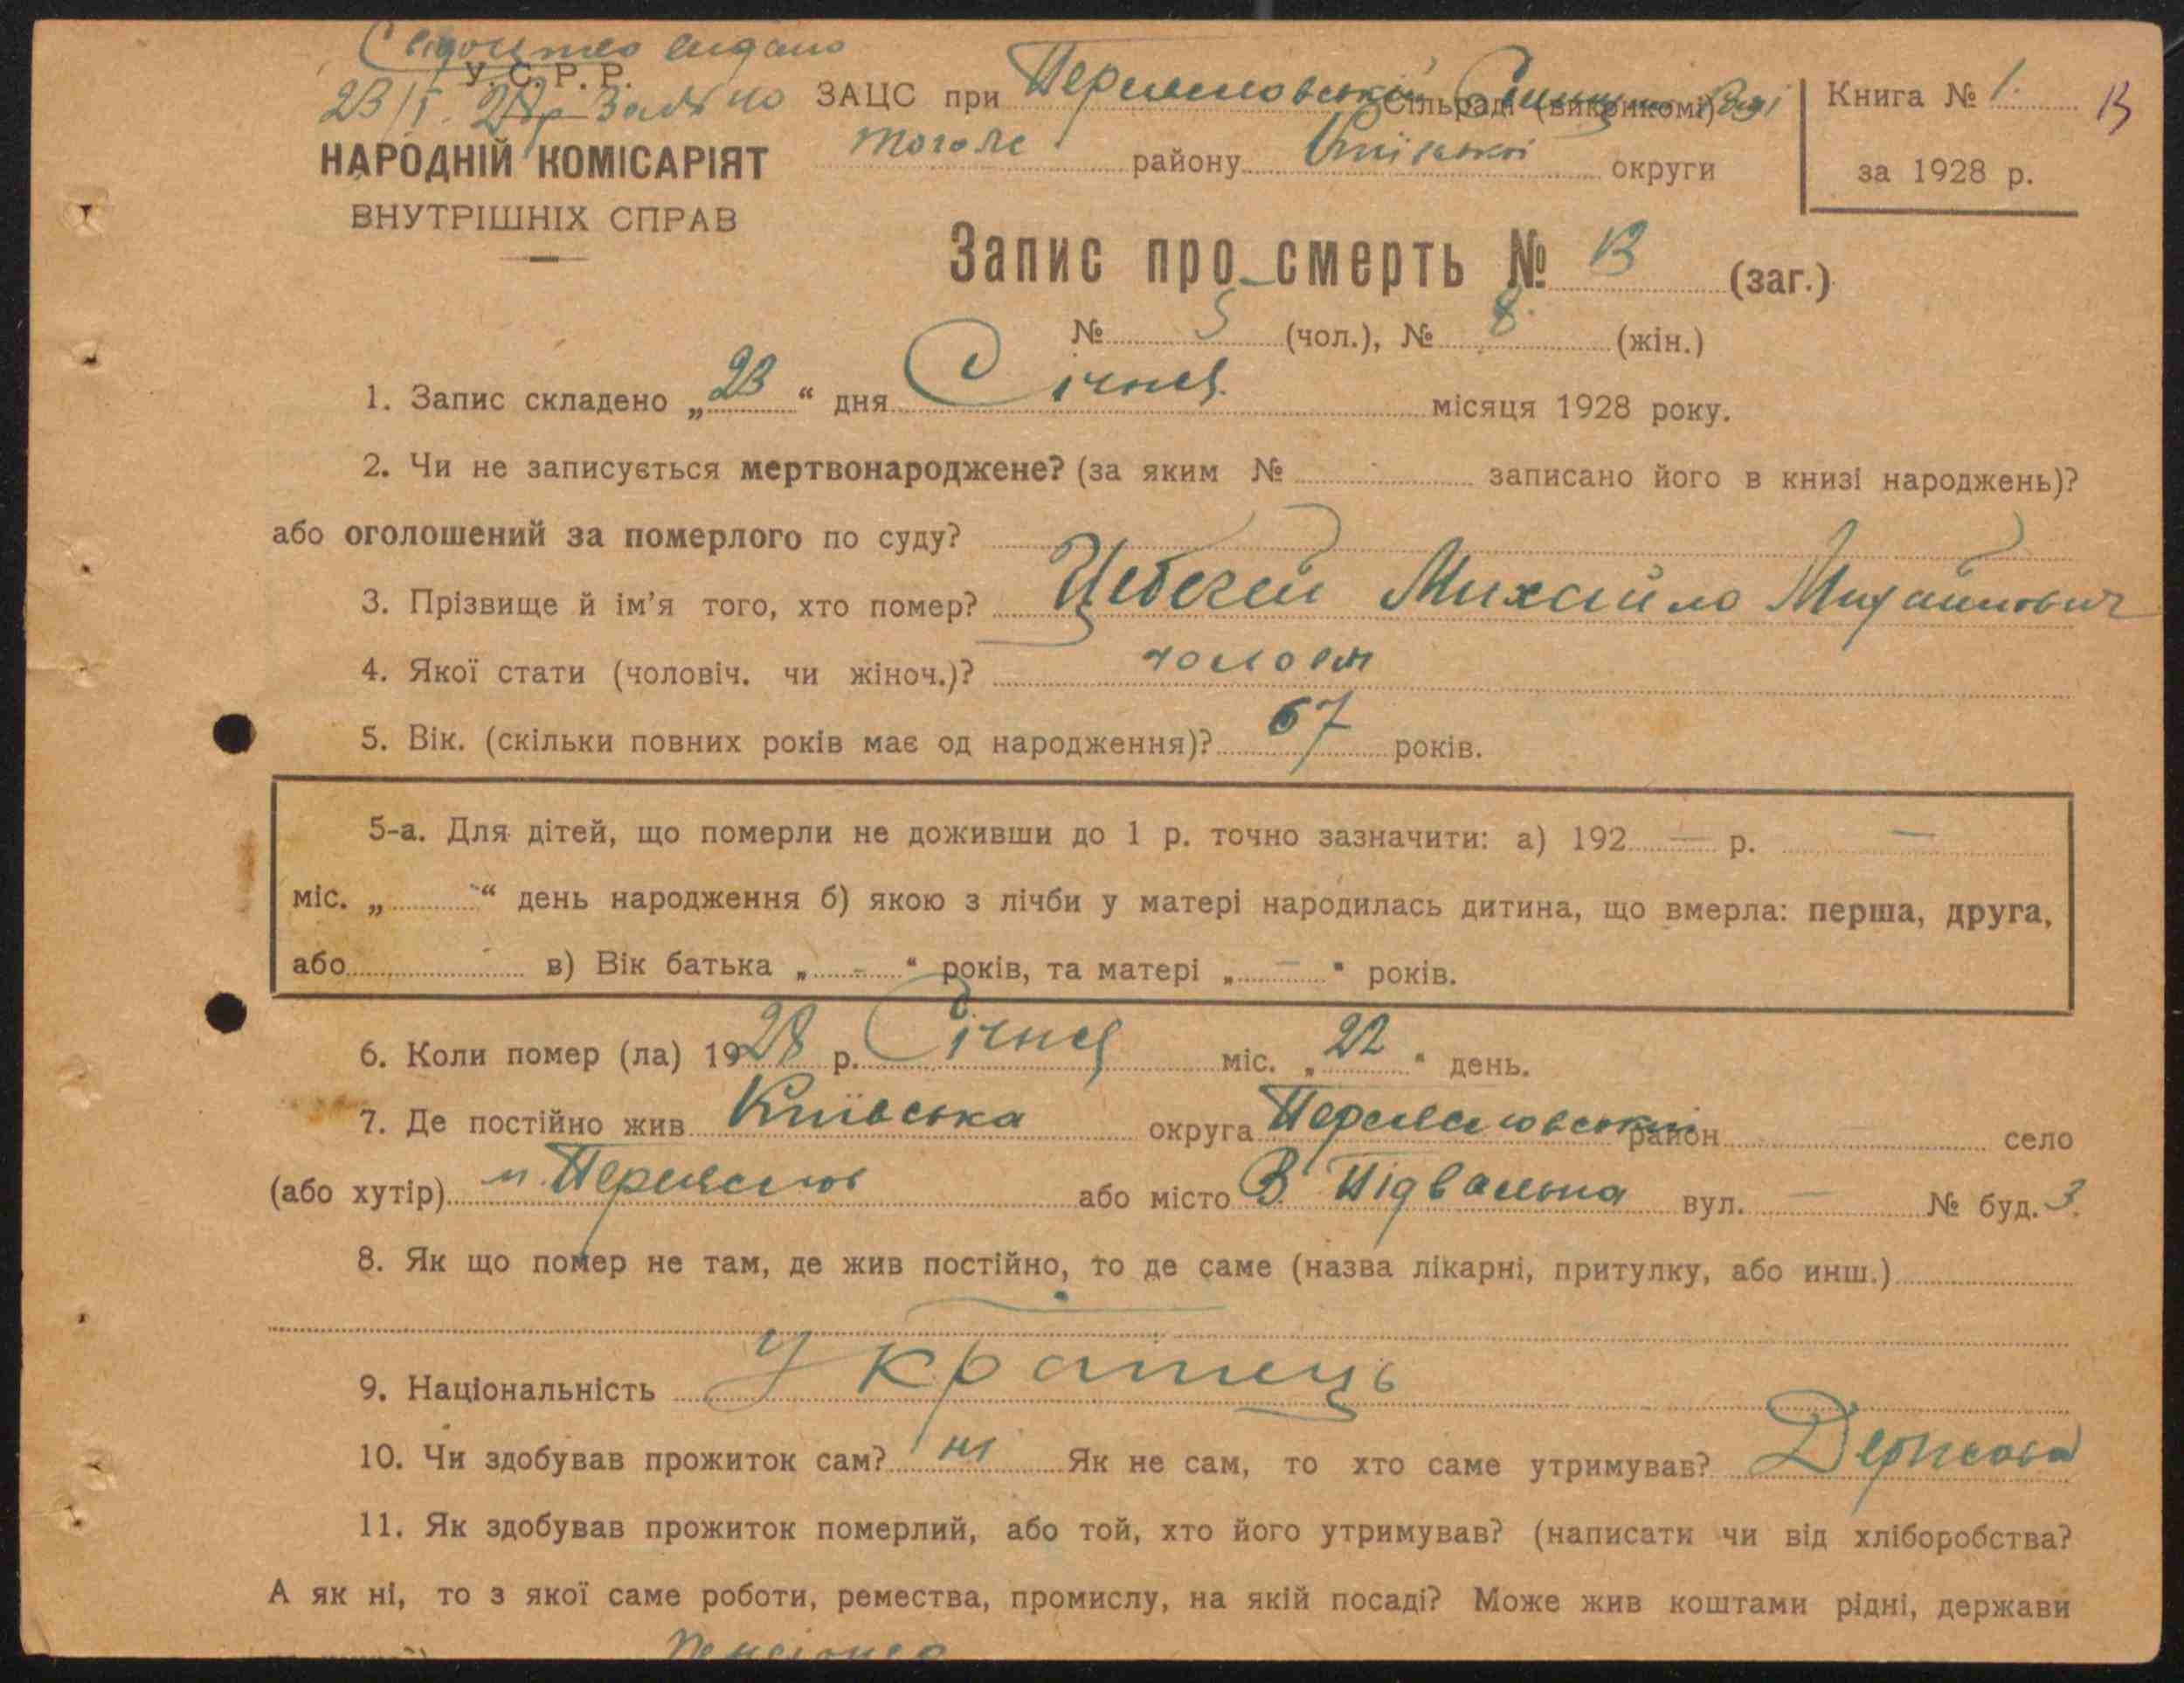 Свідоцтво видано
У.С.Р.Р.
23/I 28р За № 10
НАРОДНІЙ КОМІСАРІЯТ
ВНУТРІШНІХ СПРАВ
ЗАЦС при Переяславській сільраді (виконкомі)
того ж району Київської округи
Книга № 1.
за 1928 р.
13
Запис про смерть № 13 (заг.)
№ 5 (чол.), № 8. (жін.)
1. Запис складено „23“ дня Січня місяця 1928 року.
2. Чи не записується мертвонароджене? (за яким № записано його в книзі народжень)?
або оголошений за померлого по суду?
3. Прізвище й ім'я того, хто помер? Михайло Михайлович
4. Якої стати (чоловіч. чи жіноч.)? чолов
5. Вік. (скільки повних років має од народження)? 67 років.
5-а. Для дітей, що померли не доживши до 1 р. точно зазначити: а) 192 — р. —
міс. „ “ день народження б) якою з лічби у матері народилась дитина, що вмерла: перша, друга,
або в) Вік батька „ - “ років, та матері „ — “ років.
6. Коли помер (ла) 1928 р. Січня міс. „22“ день.
7. Де постійно жив Київська округа Переяславський район село
(або хутір) м. Переяслав або місто В. Підвальна вул. — № буд. 3.
8. Як що помер не там, де жив постійно, то де саме (назва лікарні, притулку, або инш.)
9. Національність Українець
10. Чи здобував прожиток сам? ні Як не сам, то хто саме утримував? Держава
11. Як здобував прожиток померлий, або той, хто його утримував? (написати чи від хліборобства?
А як ні, то з якої саме роботи, ремества, промислу, на якій посаді? Може жив коштами рідні, держави
пенсіонер